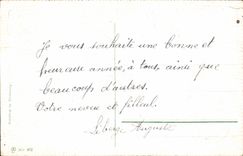 Je vous souhaite une bonne et
heureuse année, à tous, ainsi que
beaucoup d'autres.
Votre neveu et filleul.
Auguste